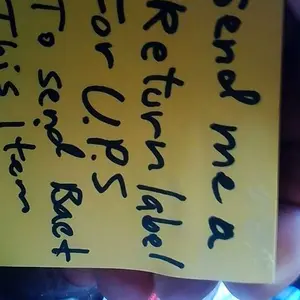 Send me a
Return label
For U.P.S
To send Bact
This Item